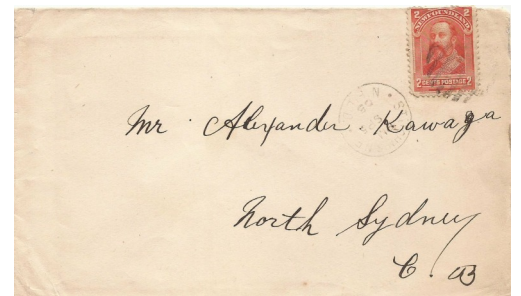 2 2
NEWFOUNDLAND
2 CENTS POSTAGE 2
Mr Alexander Kawaja
North Sydney
C. B